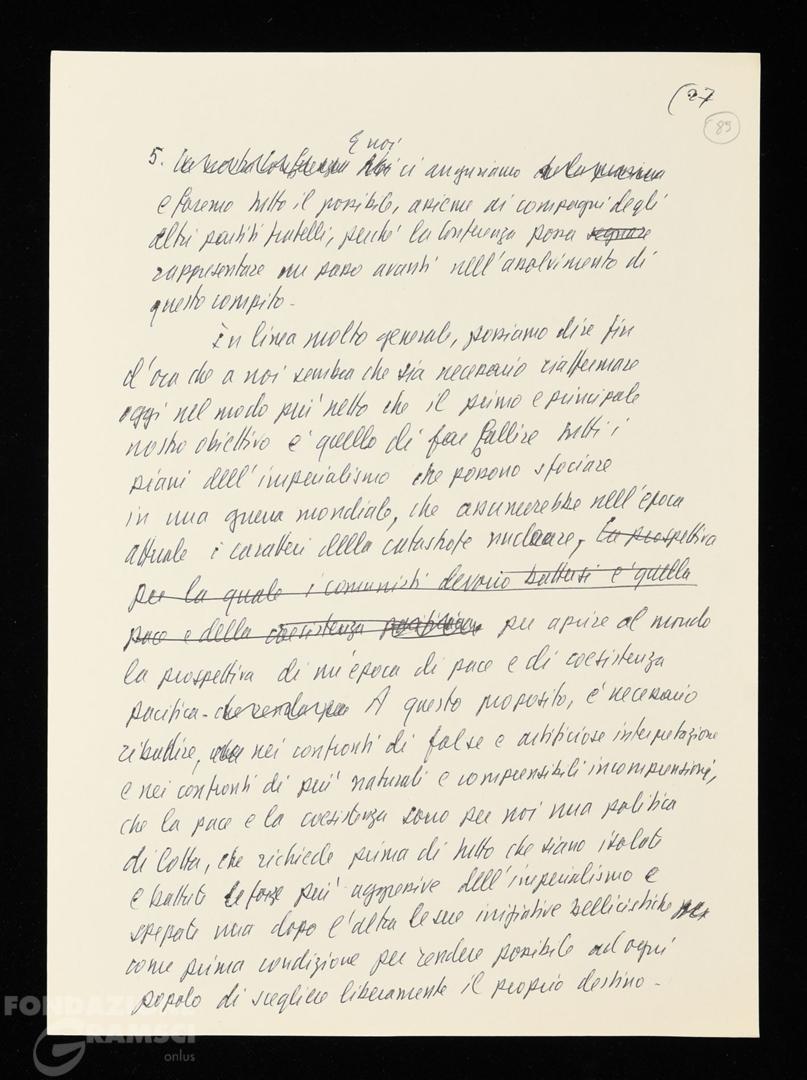 (27
89
E noi
5. ci auguriamo
e faremo tutto il possibile, assieme ai compagni degli
altri partiti fratelli, perché la Conferenza possa segnare
rappresentare un passo avanti nell'assolvimento di
questo compito -
In linea molto generale, possiamo dire fin
d'ora che a noi sembra che sia necessario riaffermare
oggi nel modo più netto che il primo e principale
nostro obiettivo è quello di far fallire tutti i
piani dell'imperialismo che possono sfociare
in una guerra mondiale, che assumerebbe nell'epoca
attuale i caratteri della catastrofe nucleare, La prospettiva
per la quale i comunisti devono battersi è quella
pace e della coesistenza pacifica, per aprire al mondo
la prospettiva di un'epoca di pace e di coesistenza
pacifica - A questo proposito, è necessario
ribattere, nei confronti di false e artificiose interpretazione
e nei confronti di più naturali e comprensibili incomprensioni,
che la pace e la coesistenza sono per noi una politica
di lotta, che richiede prima di tutto che siano isolate
e battute le forze più aggressive dell'imperialismo e
spezzate una dopo l'altra le sue iniziative bellicistiche
come prima condizione per rendere possibile ad ogni
popolo di scegliere liberamente il proprio destino -
FONDAZIONE
GRAMSCI
onlus